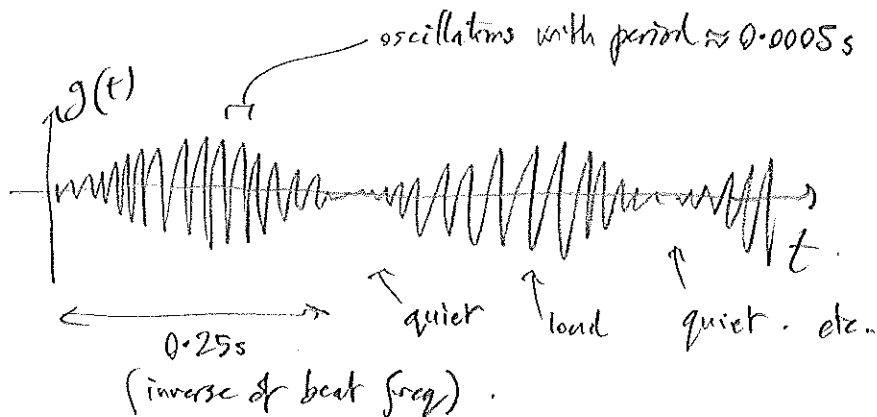 oscillations with period ≈ 0.0005 s
g(t)
t
quiet
loud
quiet. etc..
0.25s
(inverse of beat freq).